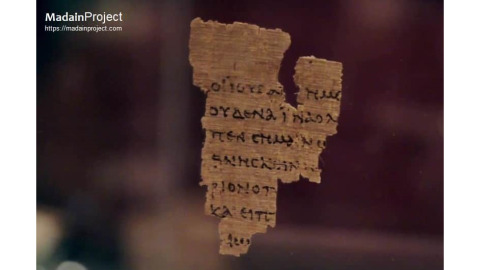 MadainProject
https://madainproject.com
ΟΙ ΙΟΥΔΑΙ ΗΜΕ
ΟΥΔΕΝΑ ΙΝΑ Ο Λ
ΠΕΝ ϹΗΜΑΙΝ
ΘΝΗϹΚΕΙΝ Ι
ΡΙΟΝ Ο Π
ΚΑΙ ΕΙΠ